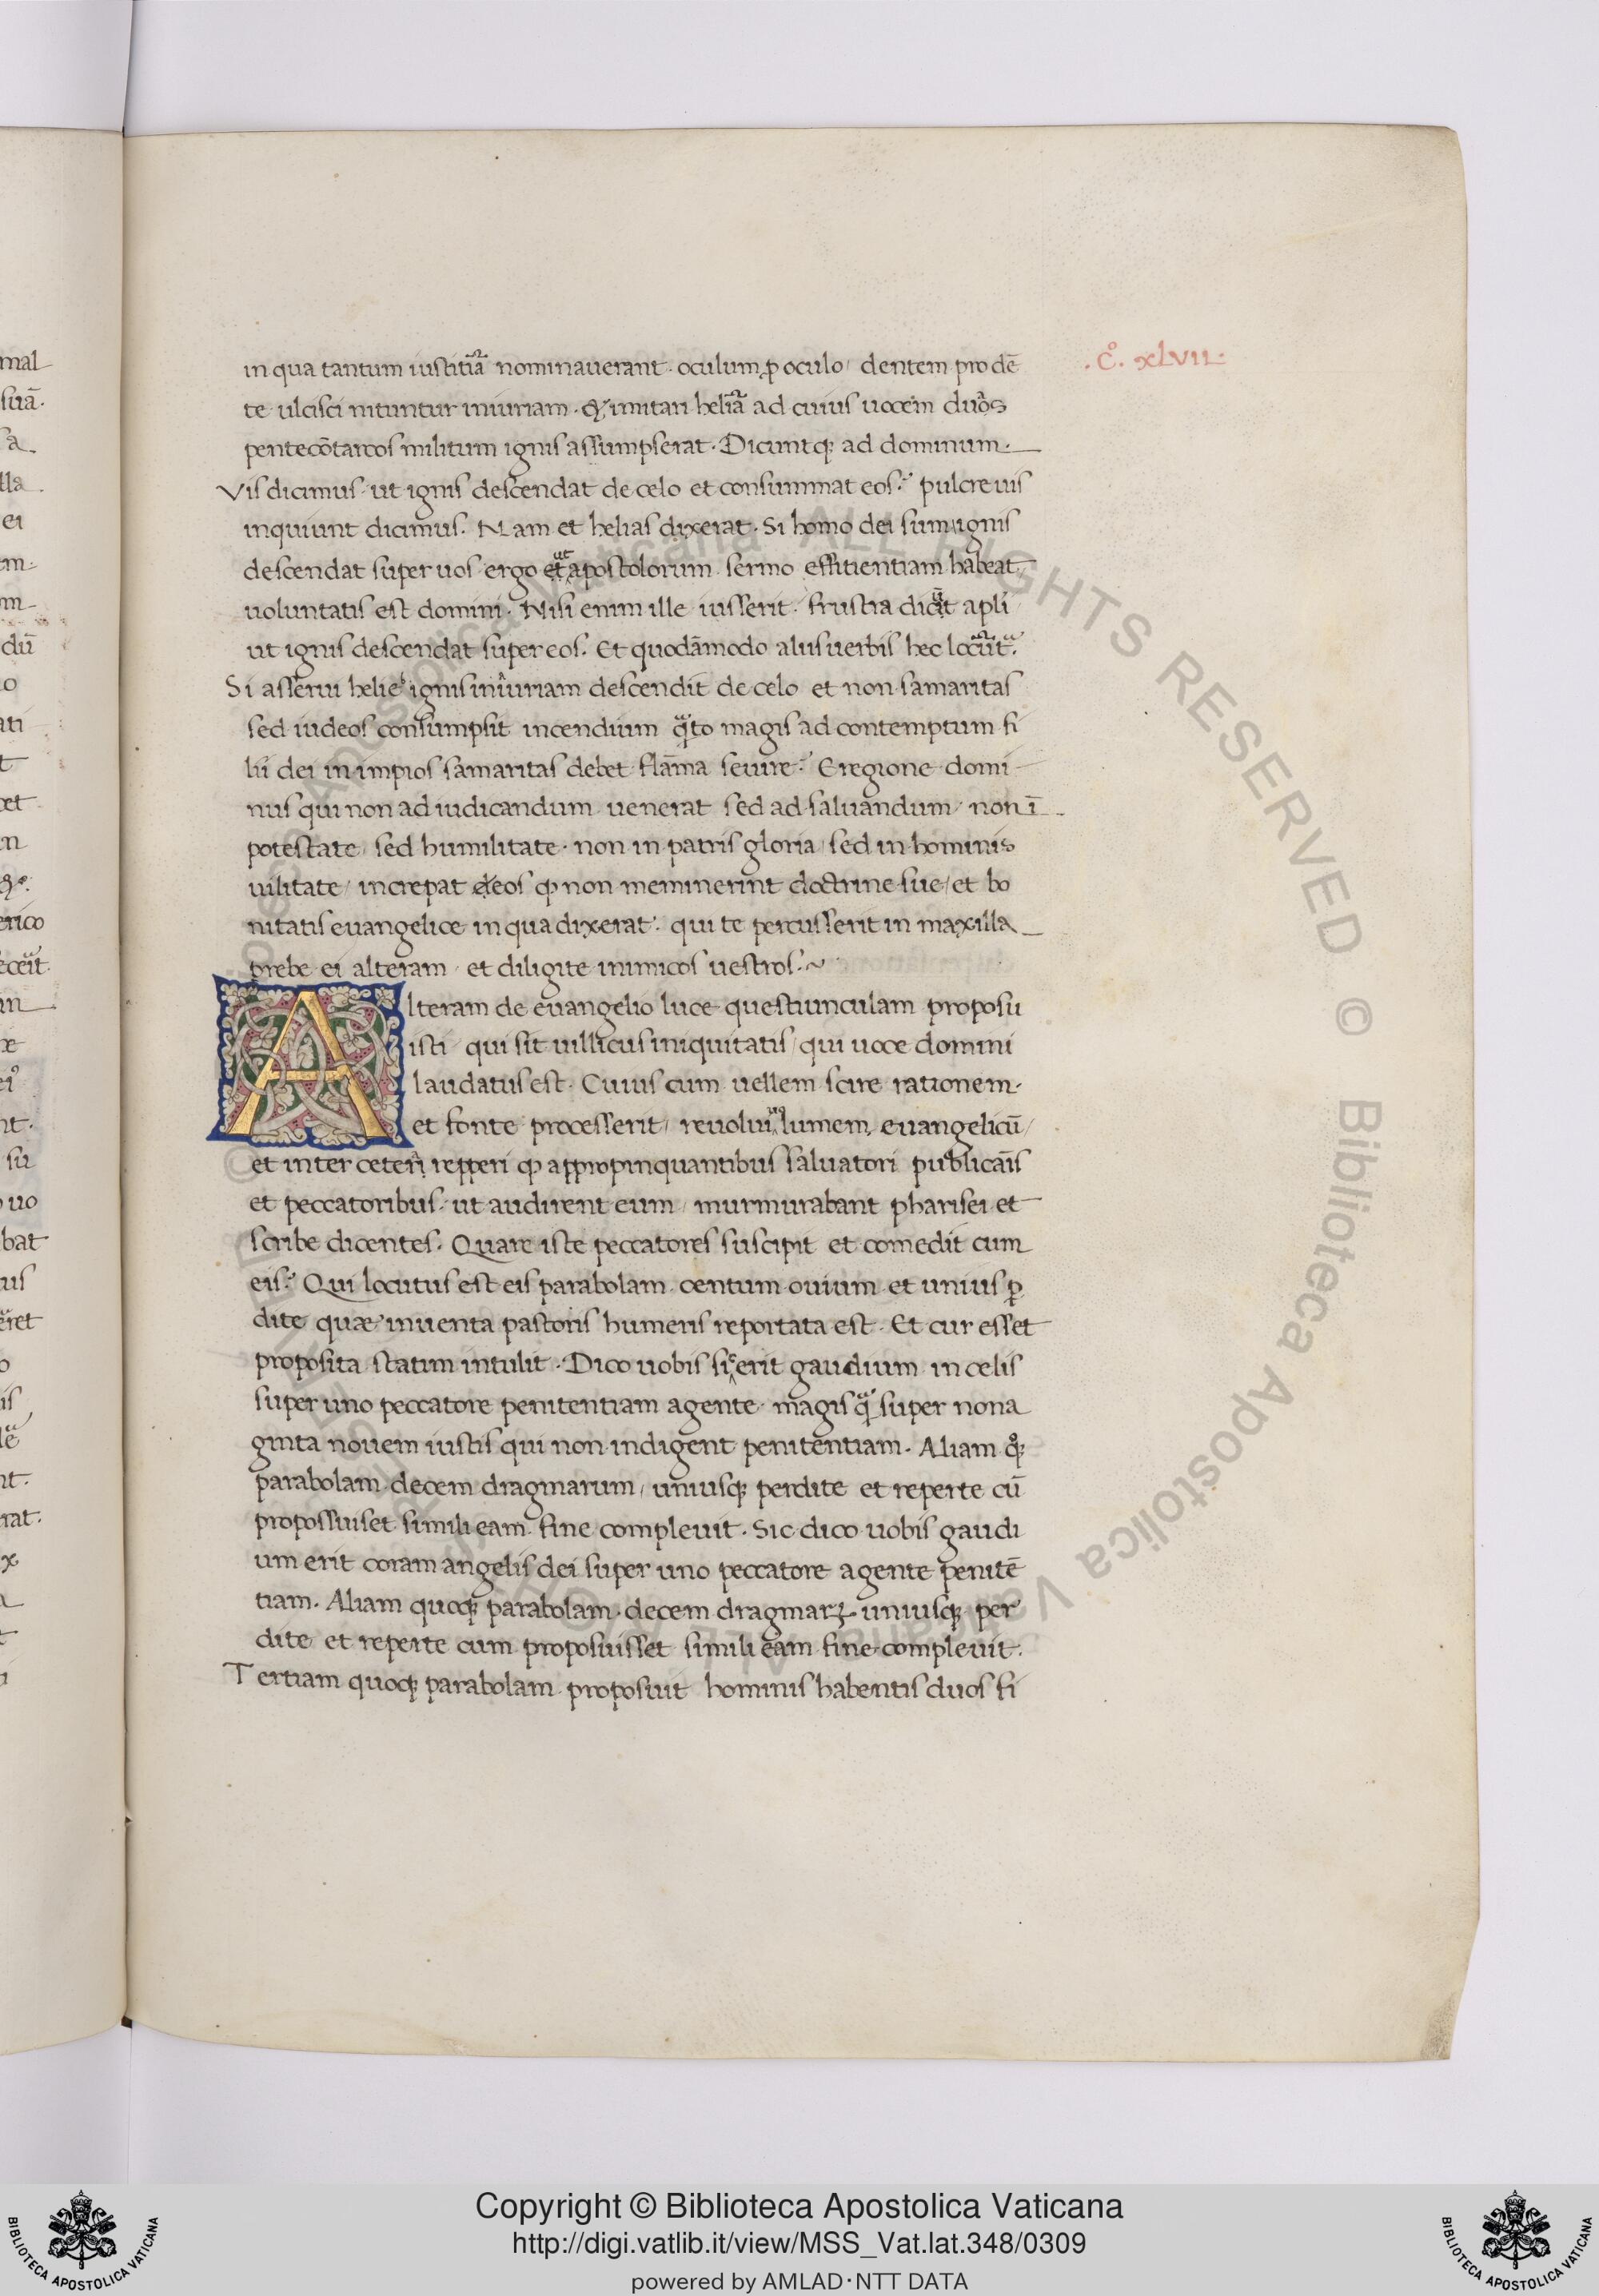 .c̊. xlvii.
in qua tantum iustitiā nominauerant. oculum ꝓ oculo/ dentem pro dē
te ulcisci nituntur iniuriam. & imitari heliā ad cuius uocem duos
pentecōtarcos militum ignis assumpserat. Dicuntqꝫ ad dominum.
Vis dicimus ut ignis descendat de celo et consummat eos? pulcre uis
inquiunt dicimus. Nam et helias dixerat. Si homo dei sum ignis
descendat super uos ergo et ut apostolorum sermo effitientiam habeat
uoluntatis est domini. Nisi enim ille iusserit. frustra dicūt apli
ut ignis descendat super eos. Et quodāmodo aliis uerbis hec
Si ad serui helie ignis iniuriam descendit de celo et non samaritas
sed iudeos consumpsit incendium qᵃ̄to magis ad contemptum fi
lii dei in impios samaritas debet flāma seuire? E regione domi
nus qui non ad iudicandum uenerat sed ad saluandum/ non ī
potestate/ sed humilitate. non in patris gloria/ sed in hominis
uilitate/ increpat eos ꝙ non meminerint doctrine sue/ et bo
nitatis euangelice in qua dixerat. qui te percusserit in maxilla
prebe ei alteram/ et diligite inimicos uestros.~
Alteram de euangelio luce questiunculam proposu
isti/ qui sit uillicus iniquitatis/ qui uoce domini
laudatus est. Cuius cum uellem scire rationem.
et fonte processerit/ reuolui uolumem euangelicū/
et inter cetera repperi ꝙ appropinquantibus saluatori publicanis
et peccatoribus. ut audirent eum/ murmurabant pharisei et
scribe dicentes. Quare iste peccatores suscipit et comedit cum
eis? Qui locutus est eis parabolam centum ouium et unius ꝑ
dite quæ inuenta pastoris humeris reportata est. Et cur esset
proposita statim intulit. Dico uobis sic erit gaudium in celis
super uno peccatore penitentiam agente. magis qᵃ̄ super nona
ginta nouem iustis qui non indigent penitentiam. Aliam qͦꝫ
parabolam decem dragmarum/ uniusqꝫ perdite et reperte cū
propossuiset simili eam fine compleuit. Sic dico uobis gaudi
um erit coram angelis dei super uno peccatore agente penitē
tiam. Aliam quoqꝫ parabolam decem dragmarꝝ uniusqꝫ per
dite et reperte cum proposuisset simili eam fine compleuit.
Tertiam quoqꝫ parabolam proposuit hominis habentis duos fi
mal
suā.
sa
lla
ei
m
dū
o
ati
t
et
n
erico
in
su
uo
bat
us
o
is
nt.
rat.
x
© Biblioteca Apostolica Vaticana ALL RIGHTS RESERVED
Copyright © Biblioteca Apostolica Vaticana
http://digi.vatlib.it/view/MSS_Vat.lat.348/0309
powered by AMLAD·NTT DATA
BIBLIOTECA APOSTOLICA VATICANA
BIBLIOTECA APOSTOLICA VATICANA